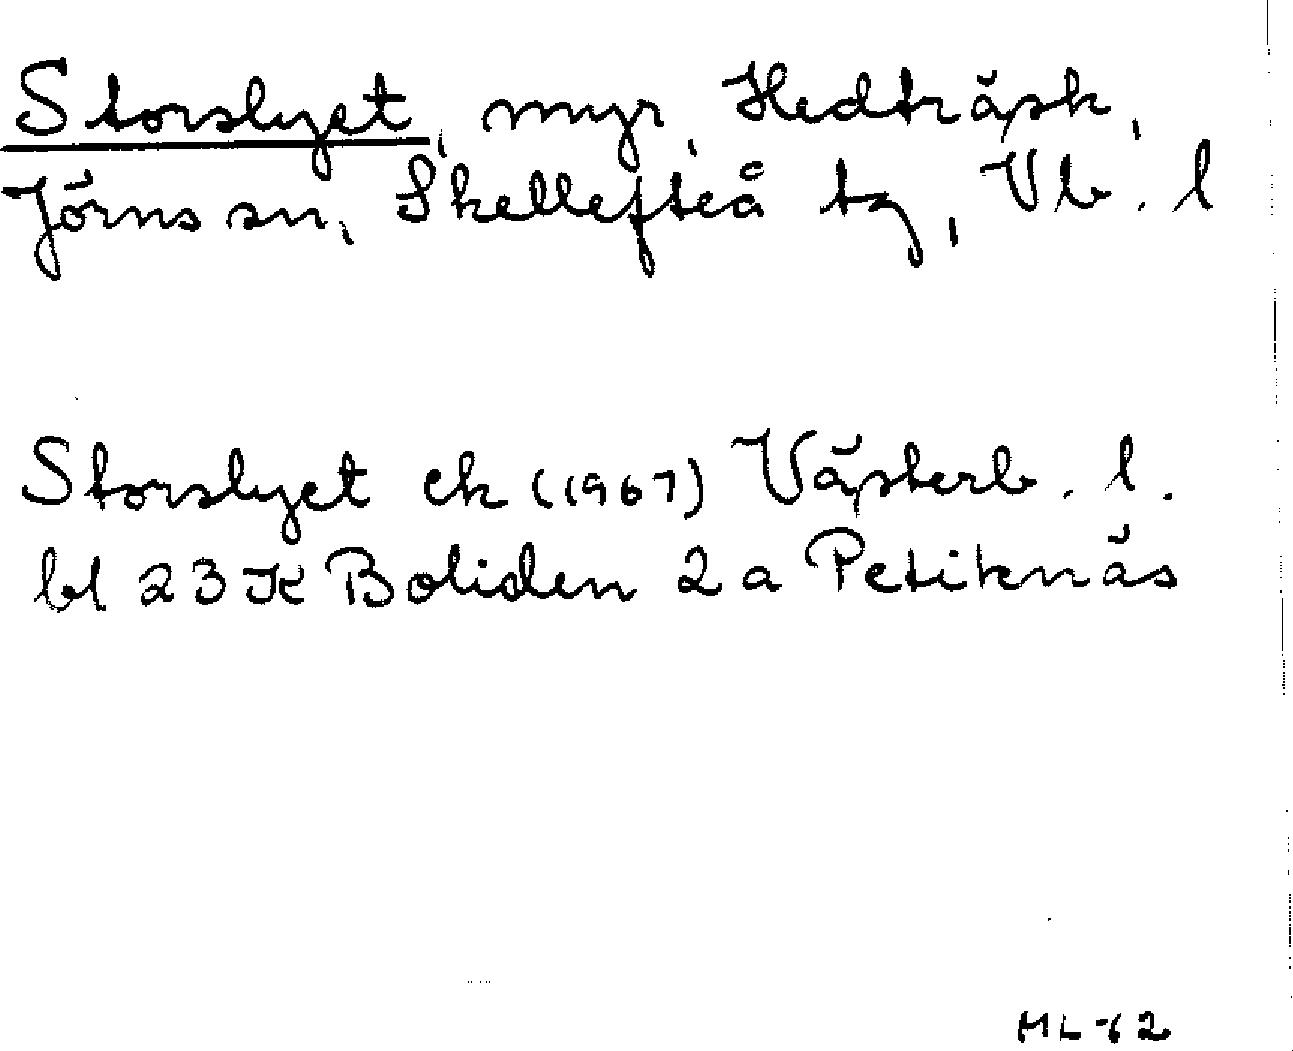 Storslyet, myr, Hedträsk,
Jörns sn, Skellefteå tg, Vb. l
Storslyet ek (1967) Västerb. l.
bl 23 K Boliden 2 a Petiknäs